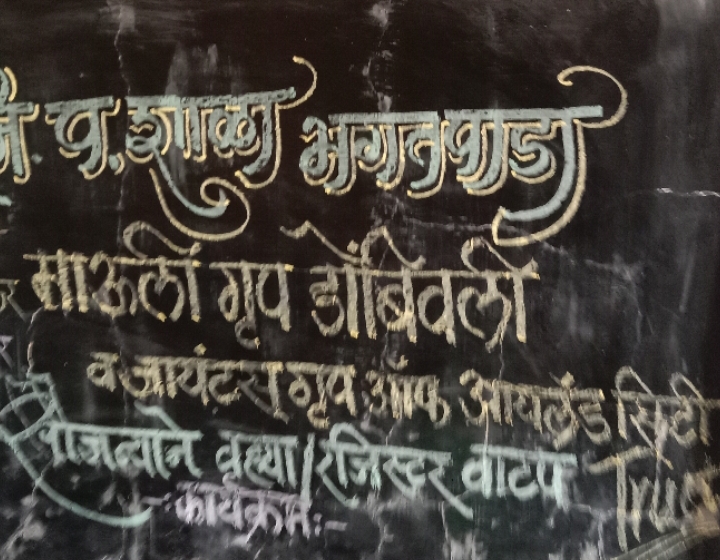 जि. प. शाळा भगतपाडा
माऊली गृप डोंबिवली
व जायंटस् गृप ऑफ आयलँड सिटी
यांजन्याने वह्या/रजिस्टर वाटप
-: कार्यक्रम :-